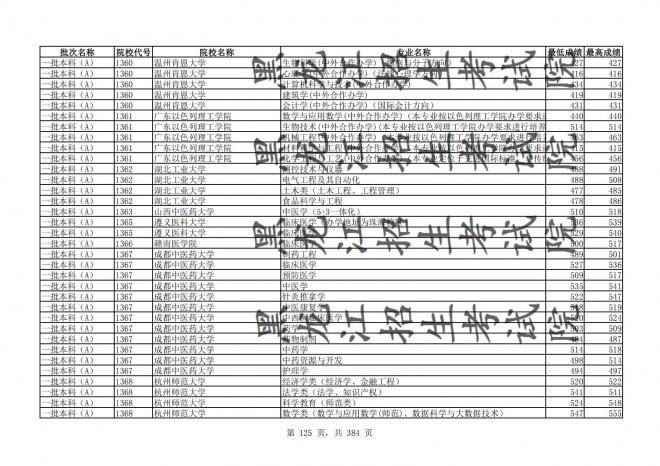 批次名称 院校代号 院校名称 专业名称 最低成绩 最高成绩
一批本科(A) 1360 温州肯恩大学 生物科学(中外合作办学) 427
一批本科(A) 1360 温州肯恩大学 心理学(中外合作办学) 416 416
一批本科(A) 1360 温州肯恩大学 计算机科学与技术(中外合作办学) 434
一批本科(A) 1360 温州肯恩大学 建筑学(中外合作办学) 419 419
一批本科(A) 1360 温州肯恩大学 会计学(中外合作办学)(国际会计方向) 431 431
一批本科(A) 1361 广东以色列理工学院 数学与应用数学(中外合作办学)(本专业按以色列理工学院办学要求进 440 440
一批本科(A) 1361 广东以色列理工学院 生物技术(中外合作办学)(本专业按以色列理工学院办学要求进行培养 514 514
一批本科(A) 1361 广东以色列理工学院 机械工程(中外合作办学)(本专业按以色列理工学院办学要求进行培养 463
一批本科(A) 1361 广东以色列理工学院 415
一批本科(A) 1361 广东以色列理工学院 456
一批本科(A) 1362 湖北工业大学 测控技术与仪器 491
一批本科(A) 1362 湖北工业大学 电气工程及其自动化 488 508
一批本科(A) 1362 湖北工业大学 土木类(土木工程、工程管理) 477 485
一批本科(A) 1362 湖北工业大学 食品科学与工程 478 486
一批本科(A) 1363 山西中医药大学 中医学(5+3一体化) 510 518
一批本科(A) 1365 遵义医科大学 临床医学(办学地址为珠海校区) 539
一批本科(A) 1365 遵义医科大学 临床医学 540
一批本科(A) 1366 赣南医学院 临床医学 517
一批本科(A) 1367 成都中医药大学 制药工程 489 501
一批本科(A) 1367 成都中医药大学 临床医学 527 536
一批本科(A) 1367 成都中医药大学 预防医学 509 517
一批本科(A) 1367 成都中医药大学 中医学 535 541
一批本科(A) 1367 成都中医药大学 针灸推拿学 522 547
一批本科(A) 1367 成都中医药大学 中医康复学 519
一批本科(A) 1367 成都中医药大学 中西医临床医学 524
一批本科(A) 1367 成都中医药大学 药学 509
一批本科(A) 1367 成都中医药大学 药物制剂 487
一批本科(A) 1367 成都中医药大学 中药学 514 518
一批本科(A) 1367 成都中医药大学 中药资源与开发 498 514
一批本科(A) 1367 成都中医药大学 护理学 494 497
一批本科(A) 1368 杭州师范大学 经济学类(经济学、金融工程) 520 522
一批本科(A) 1368 杭州师范大学 法学类(法学、知识产权) 541 541
一批本科(A) 1368 杭州师范大学 科学教育(师范类) 524 548
一批本科(A) 1368 杭州师范大学 数学类(数学与应用数学(师范)、数据科学与大数据技术) 547 555
黑龙江招生考试院
黑龙江招生考试院
黑龙江招生考试院
第 125 页，共 384 页